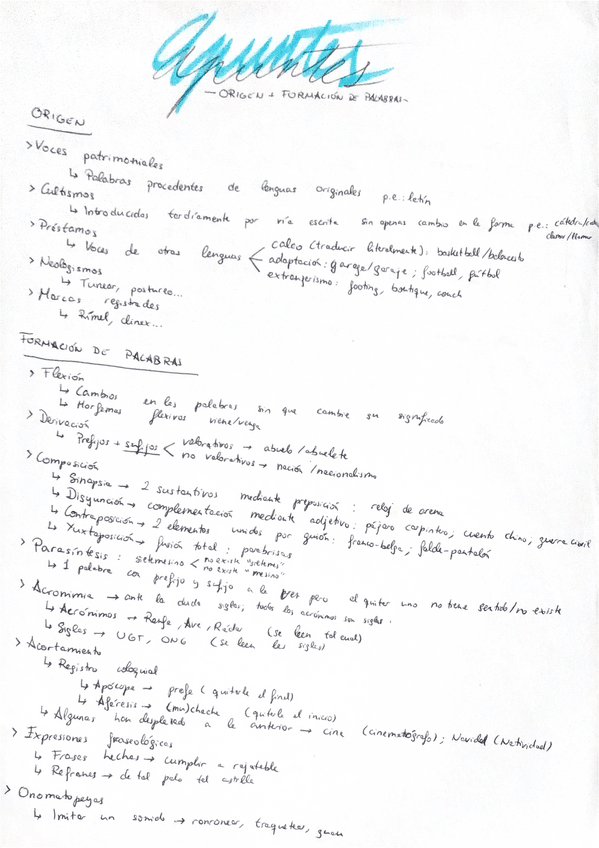 Apuntes
- ORIGEN + FORMACIÓN DE PALABRAS -
ORIGEN
> Voces patrimoniales
↳ Palabras procedentes de lenguas originales p.e.: latín
> Cultismos
↳ Introducidos tardíamente por vía escrita sin apenas cambio en la forma p.e.: cátedra/
clamar/llamar
> Préstamos
↳ Voces de otras lenguas < calco (traducir literalmente): basketball/baloncesto
adaptación: garage/garaje; football, fútbol
extranjerismo: footing, boutique, coach
> Neologismos
↳ Tunear, postureo...
> Marcas registradas
↳ Rímel, clinex...
FORMACIÓN DE PALABRAS
> Flexión
↳ Cambios en las palabras sin que cambie su significado
↳ Morfemas flexivos viene/venga
> Derivación
↳ Prefijos + sufijos < valorativos → abuelo/abuelete
no valorativos → nación/nacionalismo
> Composición
↳ Sinapsia → 2 sustantivos mediante preposición: reloj de arena
↳ Disyunción → complementación mediante adjetivo: pájaro carpintero; cuento chino; guerra civil
↳ Contraposición → 2 elementos unidos por guión: franco-belga; falda-pantalón
↳ Yuxtaposición → fusión total: parabrisas
> Parasíntesis: setemesino < no existe "setemes"
no existe "mesino"
↳ 1 palabra con prefijo y sufijo a la vez pero al quitar uno no tiene sentido/no existe
> Acronimia → ante la duda siglas, todos los acrónimos son siglas.
↳ Acrónimos → Renfe, Ave, Radar (se leen tal cual)
↳ Siglas → UGT, ONG (se leen las siglas)
> Acortamiento
↳ Registro coloquial
↳ Apócope → profe (quitarle el final)
↳ Aféresis → (mu)chacha (quitarle el inicio)
↳ Algunas han desplazado a la anterior → cine (cinematógrafo); Navidad (Natividad)
> Expresiones fraseológicas
↳ Frases hechas → cumplir a rajatable
↳ Refranes → de tal palo tal astilla
> Onomatopeyas
↳ Imitar un sonido → ronronear, traquetear,